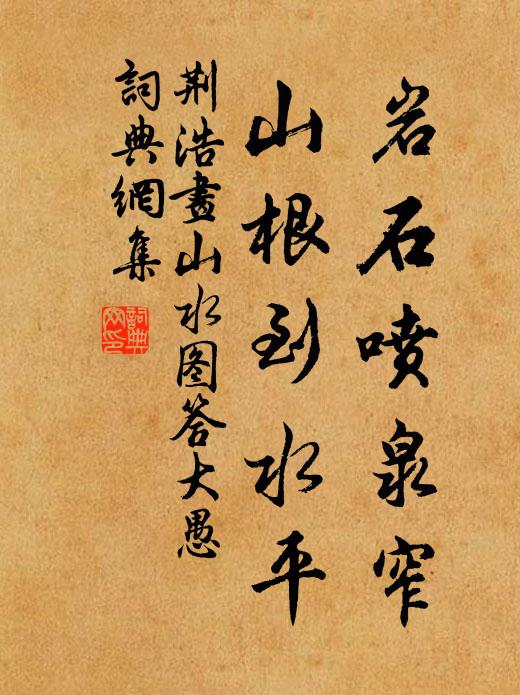 岩石喷泉窄
山根到水平
荆浩畫山水图答大愚
詞典網集
詞典網印